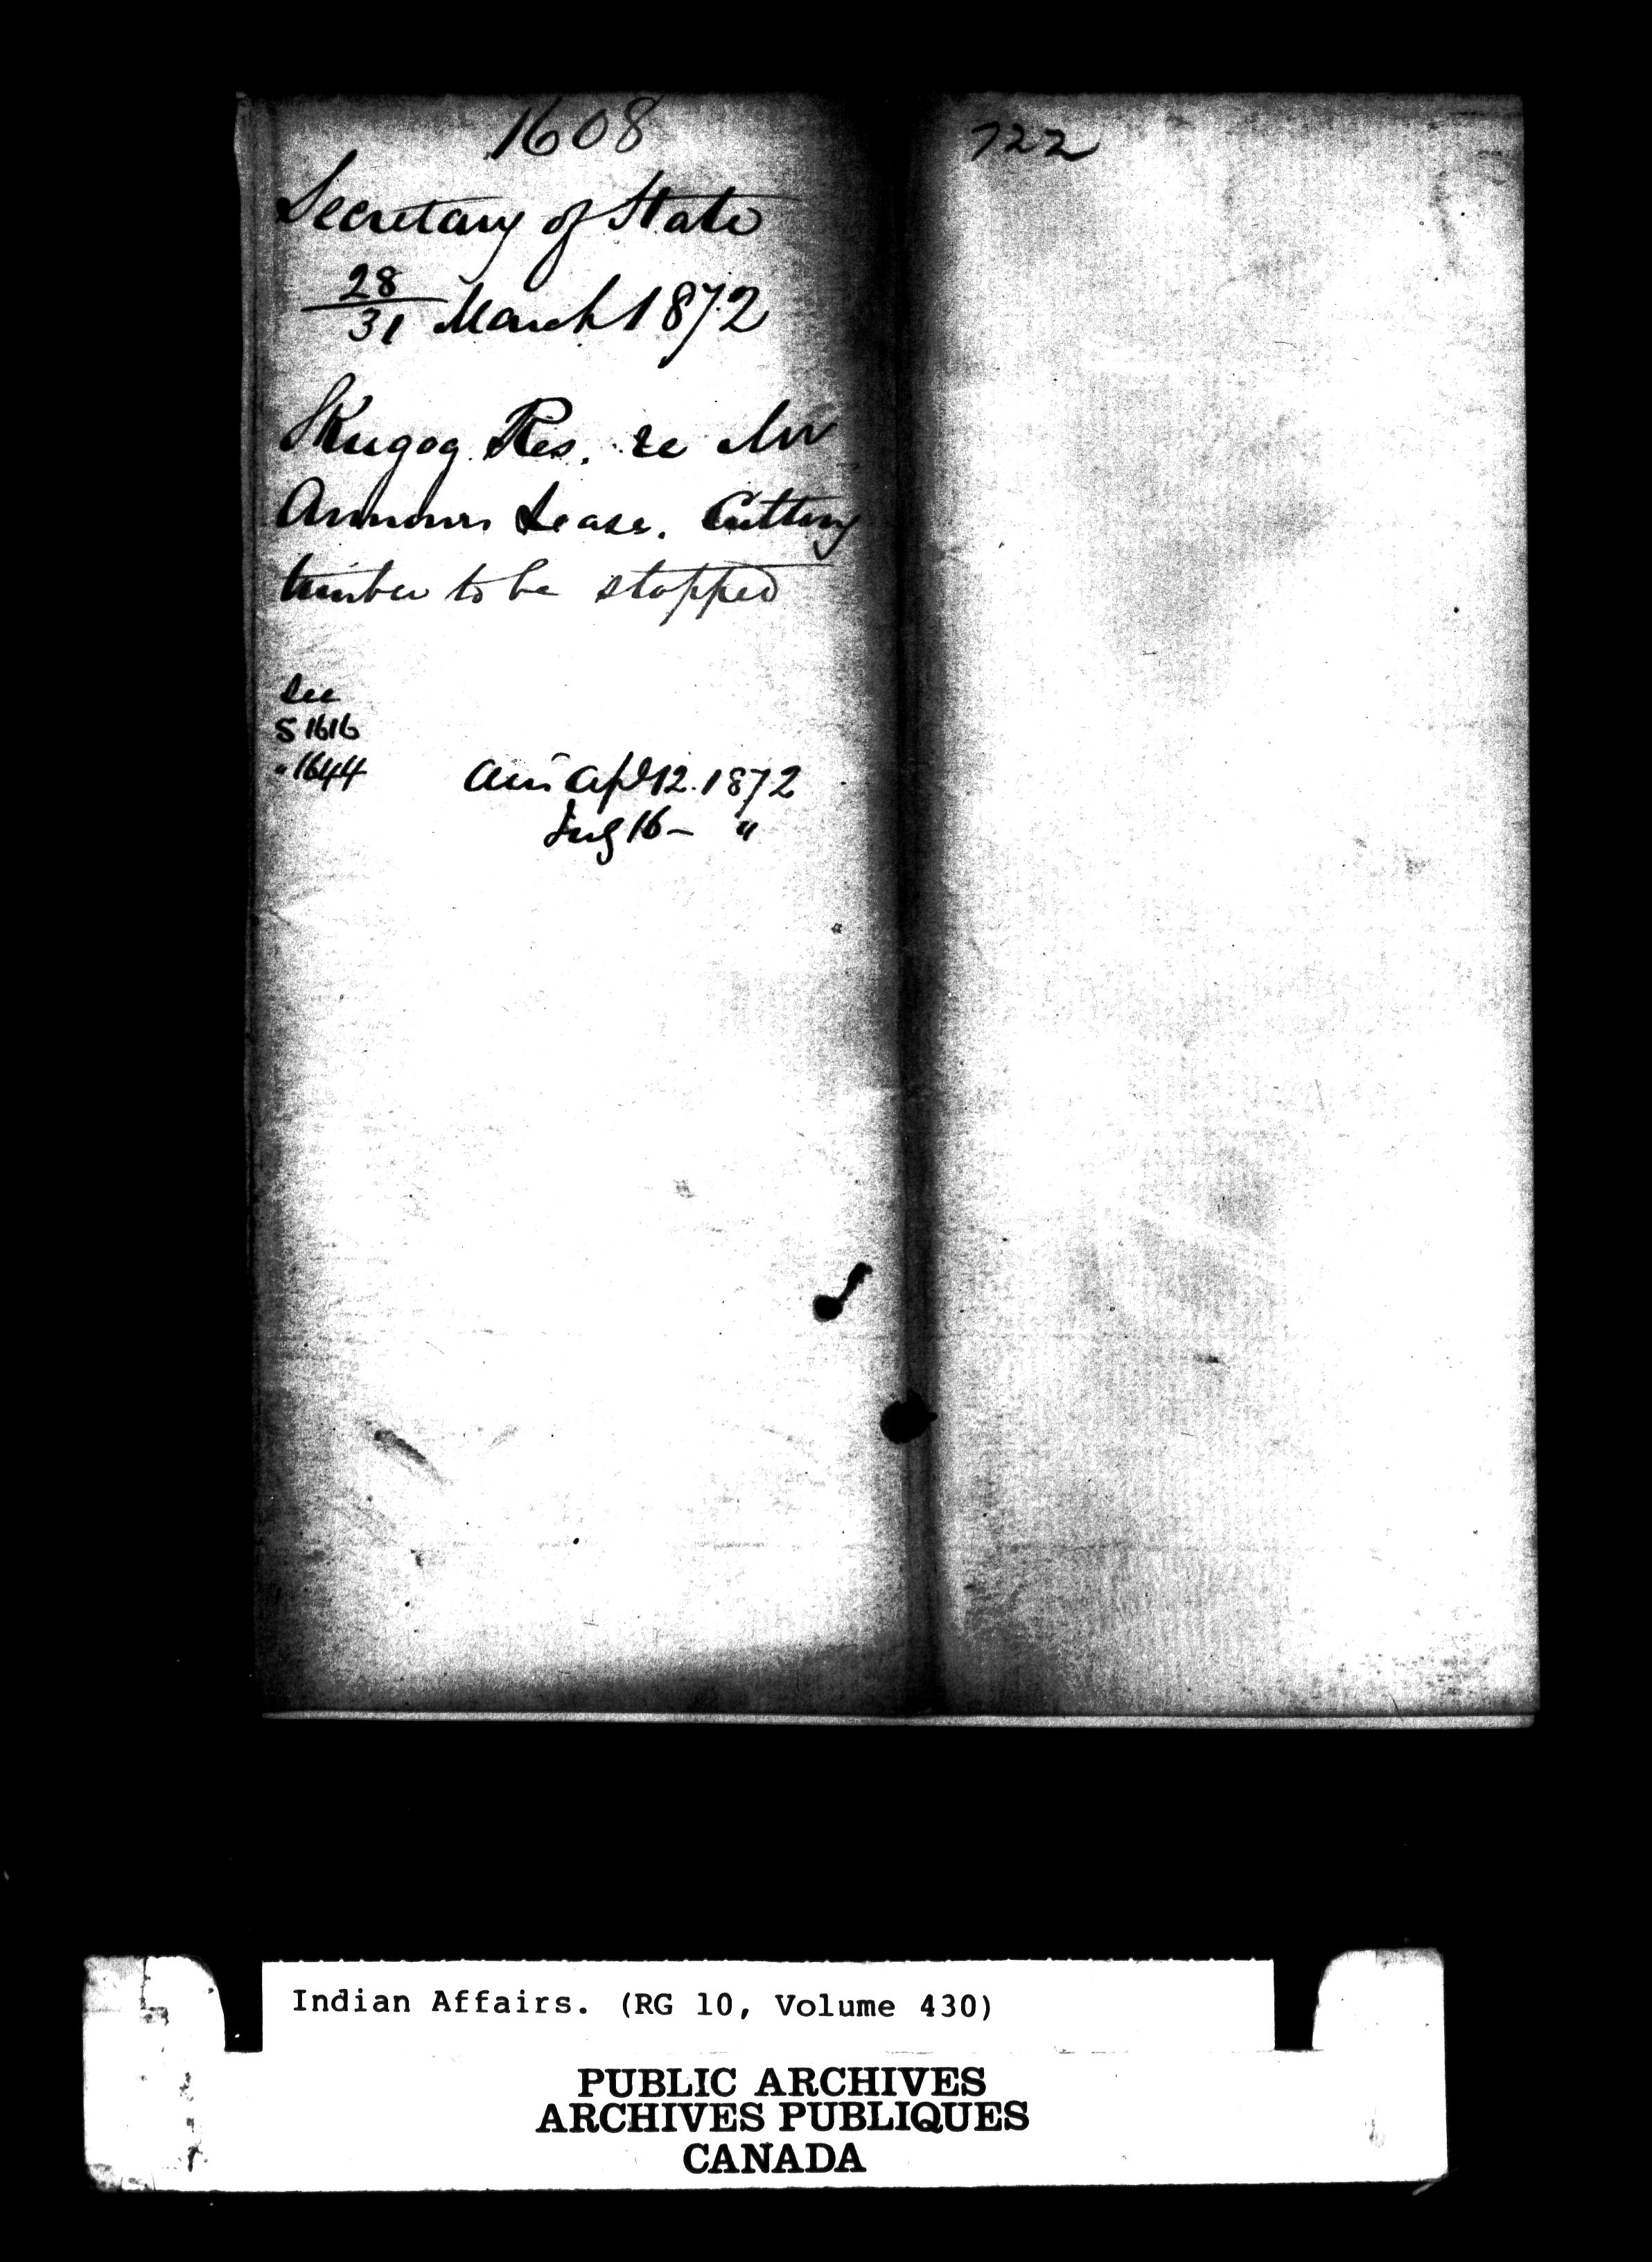 1608
Secretary of State
28/31 March 1872
Skugog Res. re Mr
Armours Lease. Cutting
timber to be stopped
See
S 1616
" 1644
Ans Apl 12. 1872
16 - "
722
Indian Affairs. (RG 10, Volume 430)
PUBLIC ARCHIVES
ARCHIVES PUBLIQUES
CANADA